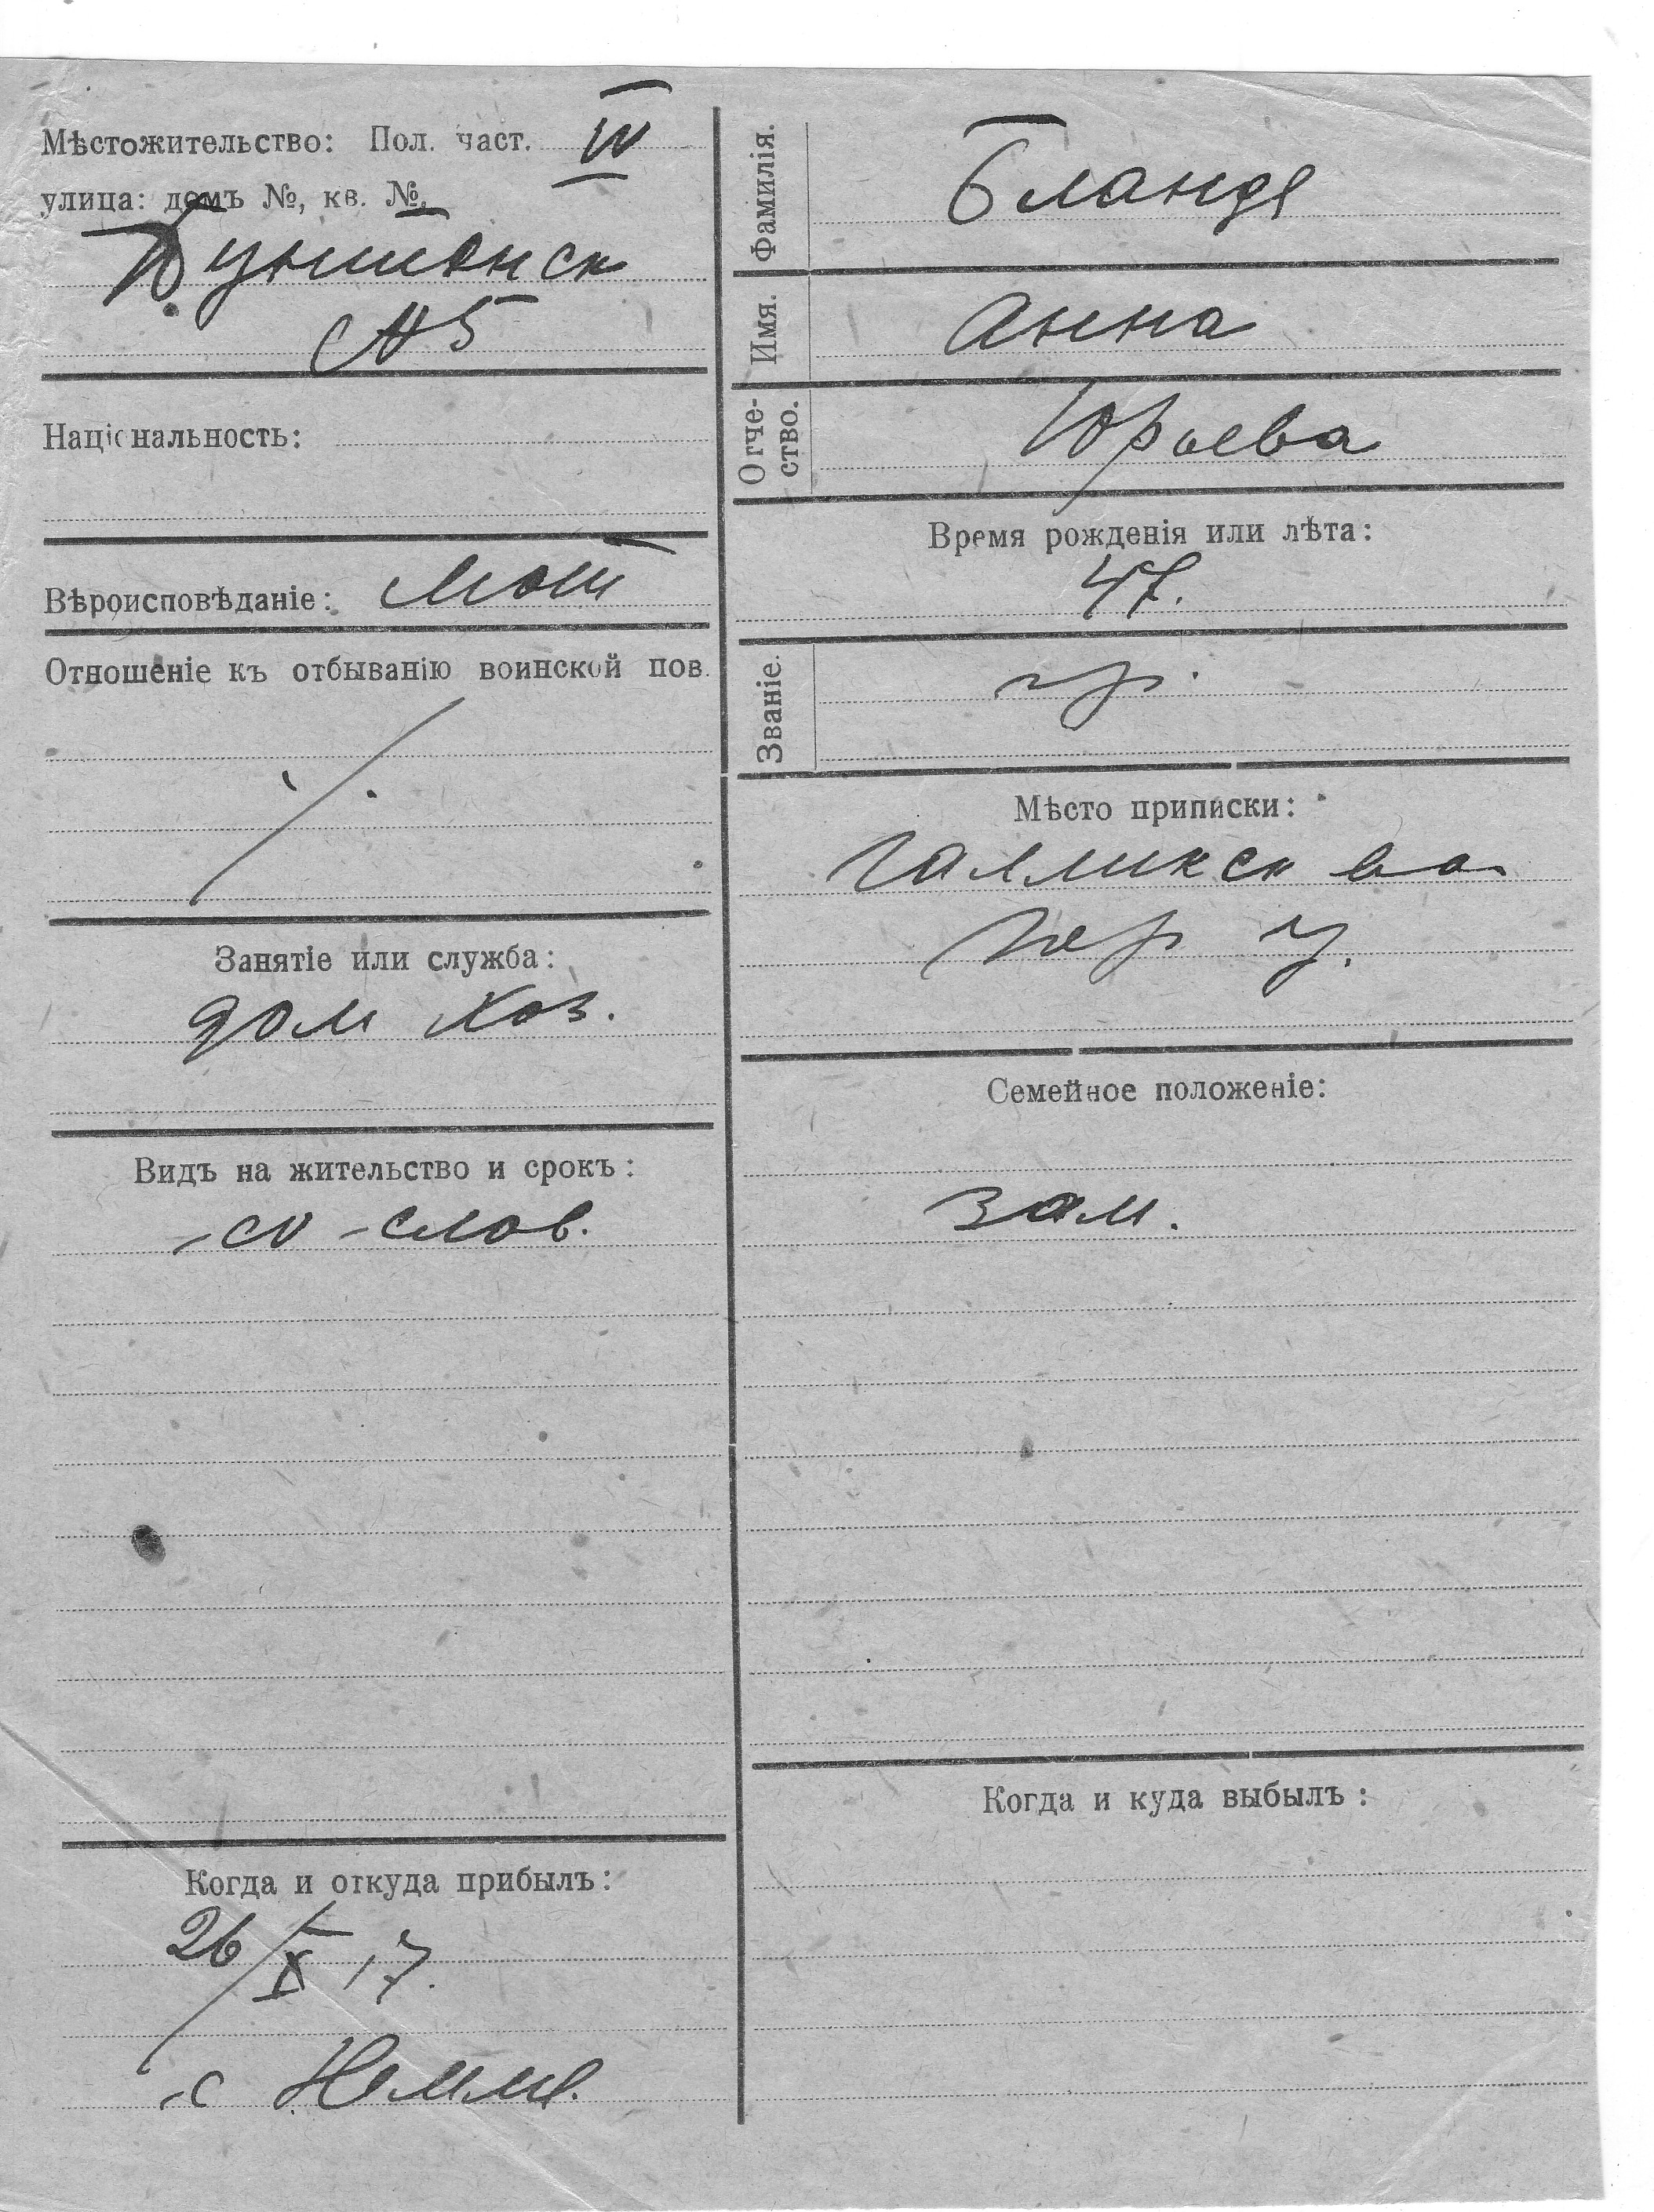 Мѣстожительство: Пол. част. IV
улица: домъ №, кв. №.
№ 5
Національность:
Вѣроисповѣданіе: лют
Отношеніе къ отбыванію воинской пов.
Занятіе или служба:
дом хоз.
Видъ на жительство и срокъ:
со слов.
Когда и откуда прибылъ:
26/X 17.
с Немме.
Фамилія. Бланде
Имя. Анна
Отче-
ство. Юрьева
Время рожденія или лѣта:
47.
Званіе. кр.
Мѣсто приписки:
у.
Семейное положеніе:
зам.
Когда и куда выбылъ: